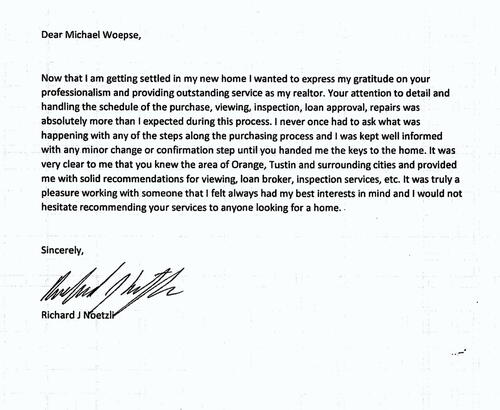 Dear Michael Woepse,
Now that I am getting settled in my new home I wanted to express my gratitude on your
professionalism and providing outstanding service as my realtor. Your attention to detail and
handling the schedule of the purchase, viewing, inspection, loan approval, repairs was
absolutely more than I expected during this process. I never once had to ask what was
happening with any of the steps along the purchasing process and I was kept well informed
with any minor change or confirmation step until you handed me the keys to the home. It was
very clear to me that you knew the area of Orange, Tustin and surrounding cities and provided
me with solid recommendations for viewing, loan broker, inspection services, etc. It was truly a
pleasure working with someone that I felt always had my best interests in mind and I would not
hesitate recommending your services to anyone looking for a home.
Sincerely,
Richard J Noetzli